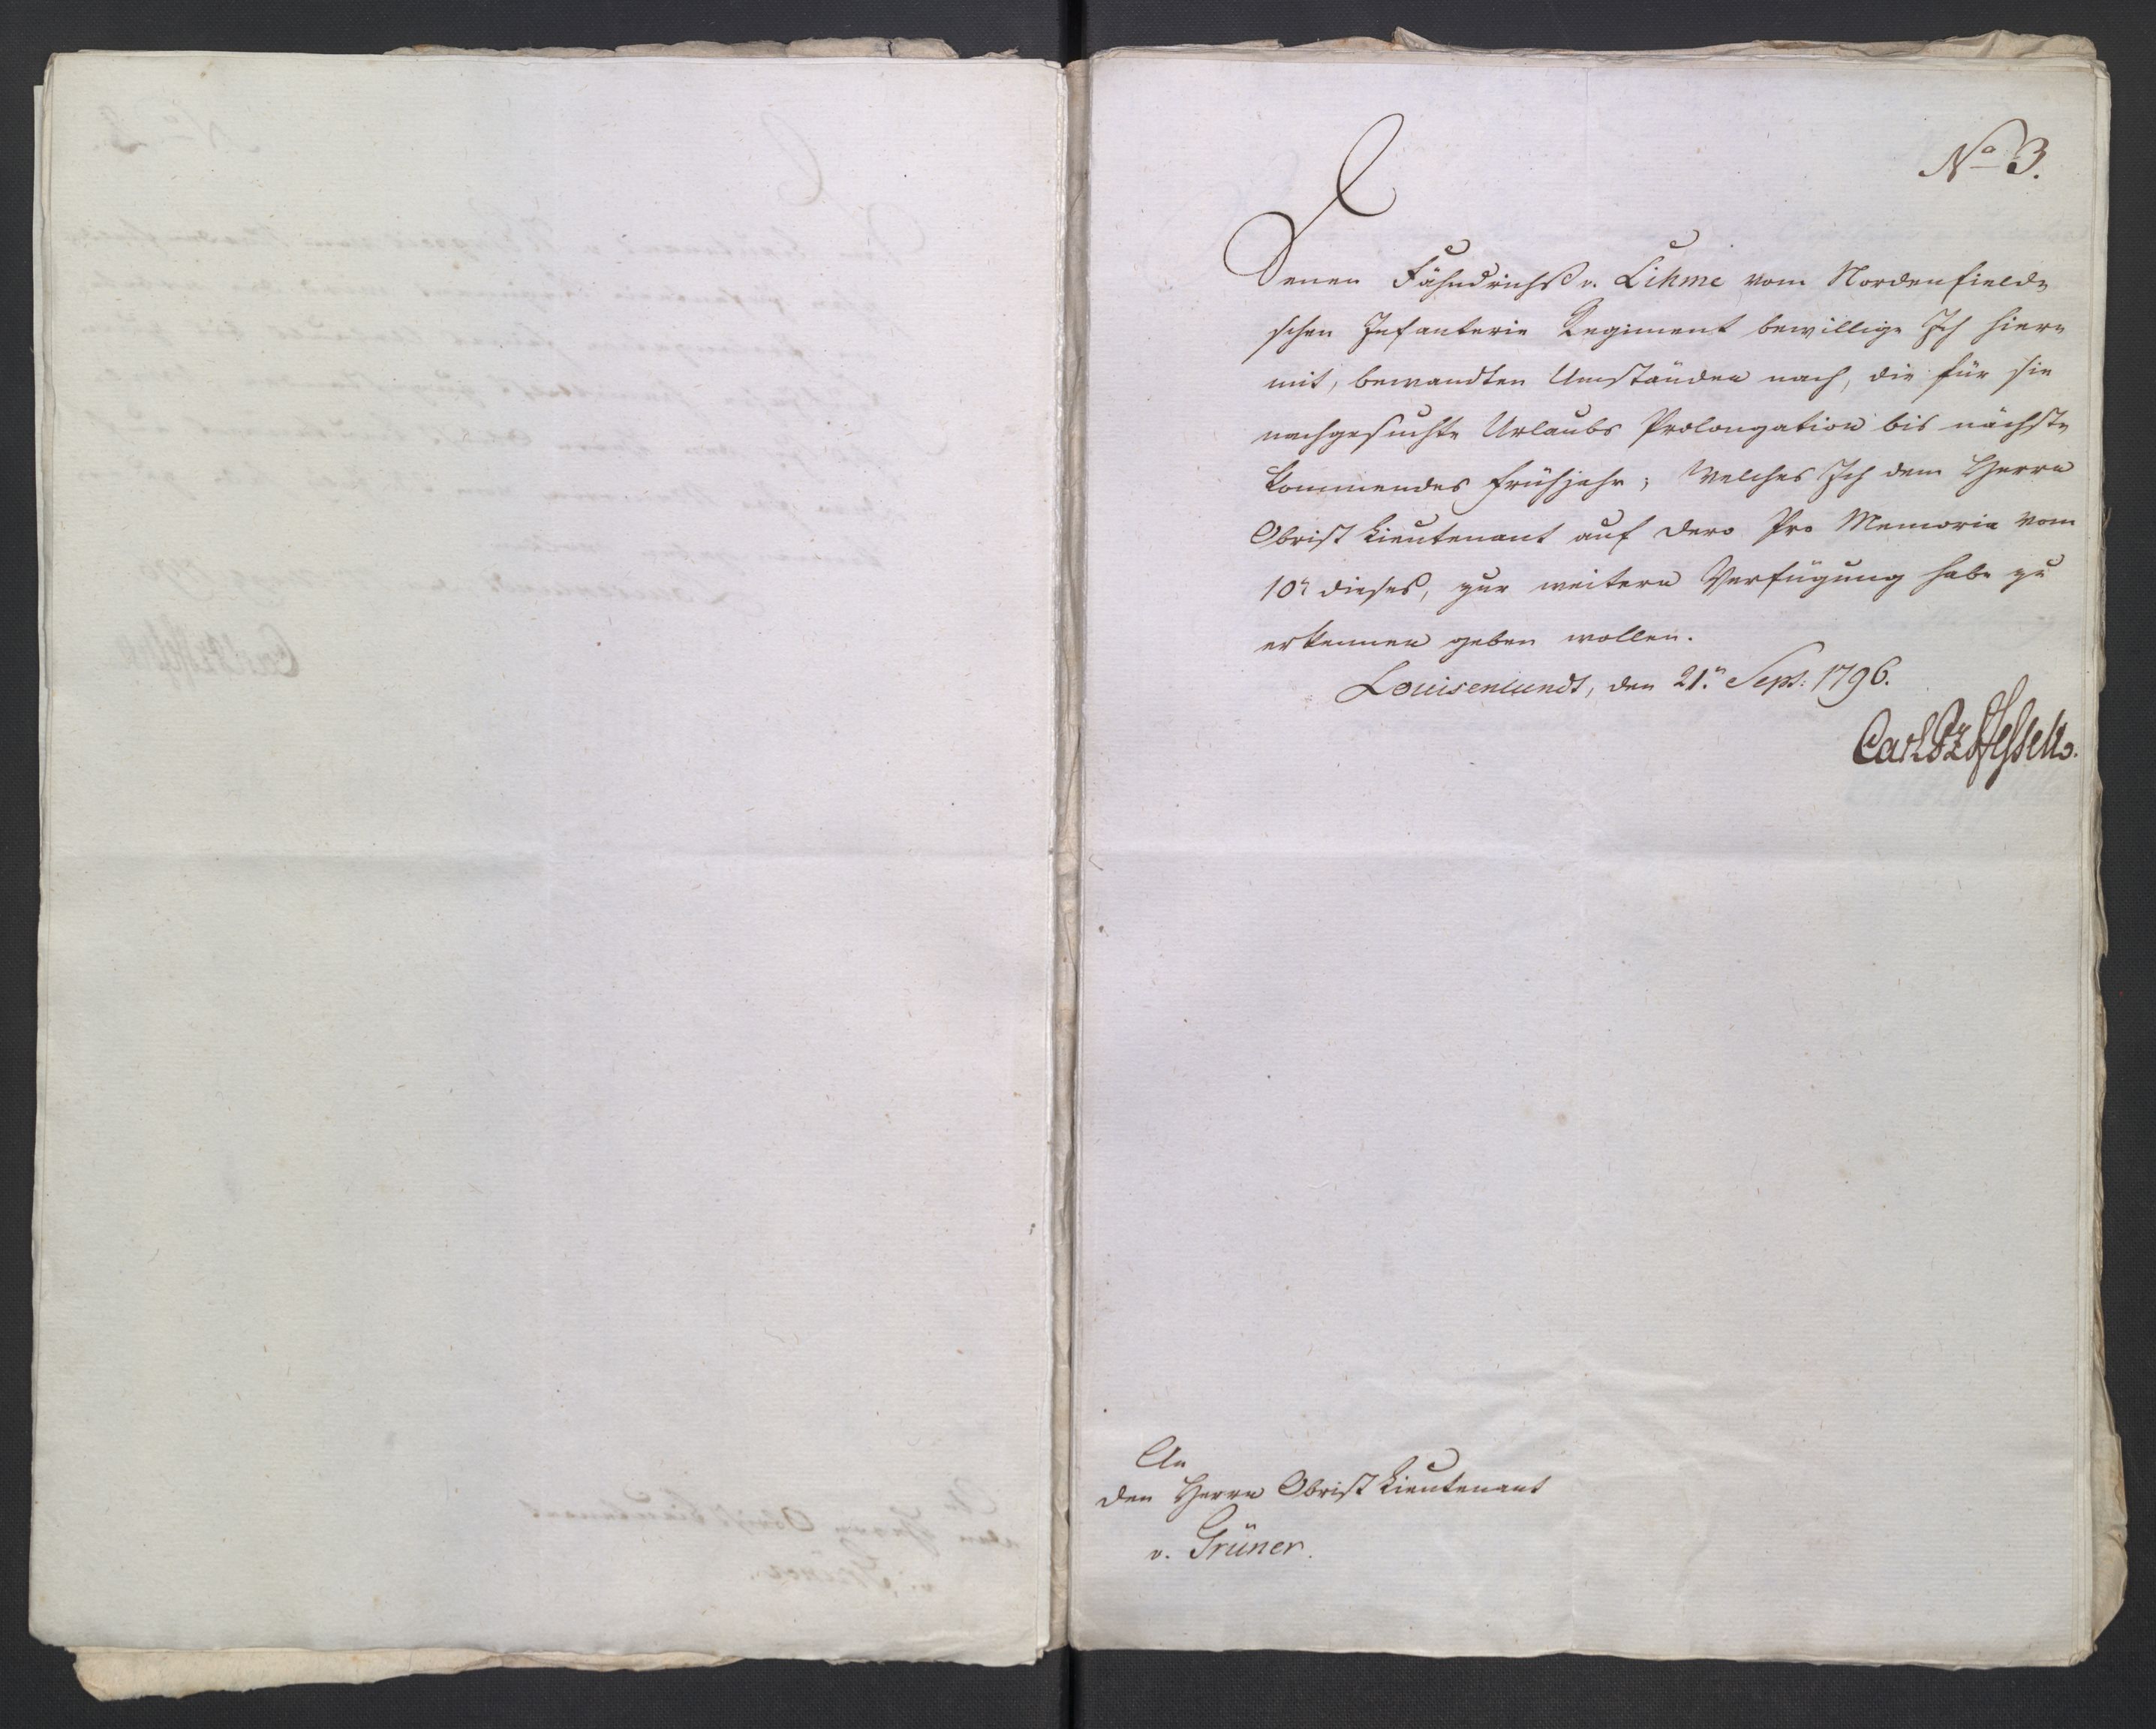 No 3.
Denen Fähndrichs v. Lihme vom Nordenfield-
schen Infanterie Regiment bewillige Ich hier-
mit, bewandten Umständen nach, die für sie
nachgesuchte Urlaubs Prolongation bis nächst-
kommendes Frühjahr; Welches Ich dem Herrn
Obrist Lieutenant auf dero Pro Memoria vom
10n dieses, zur weitern Verfügung habe zu
erkennen geben wollen.
Louisenlundt, den 21n Sept: 1796.
Carl Pz Hessen.
An
den Herrn Obrist Lieutenant
v. Grüner.